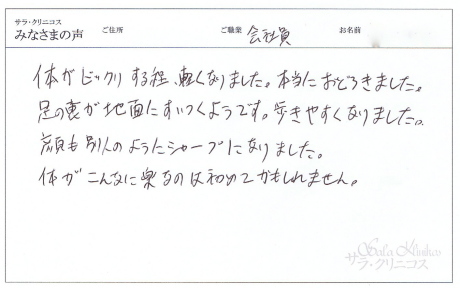 サラ・クリニコス
みなさまの声 ご住所 ご職業 会社員 お名前
体がビックリする程、軽くなりました。本当におどろきました。
足の裏が地面にすいつくようです。歩きやすくなりました。
顔も別人のようにシャープになりました。
体がこんなに楽なのは初めてかもしれません。
Sala Klinikos
サラ・クリニコス